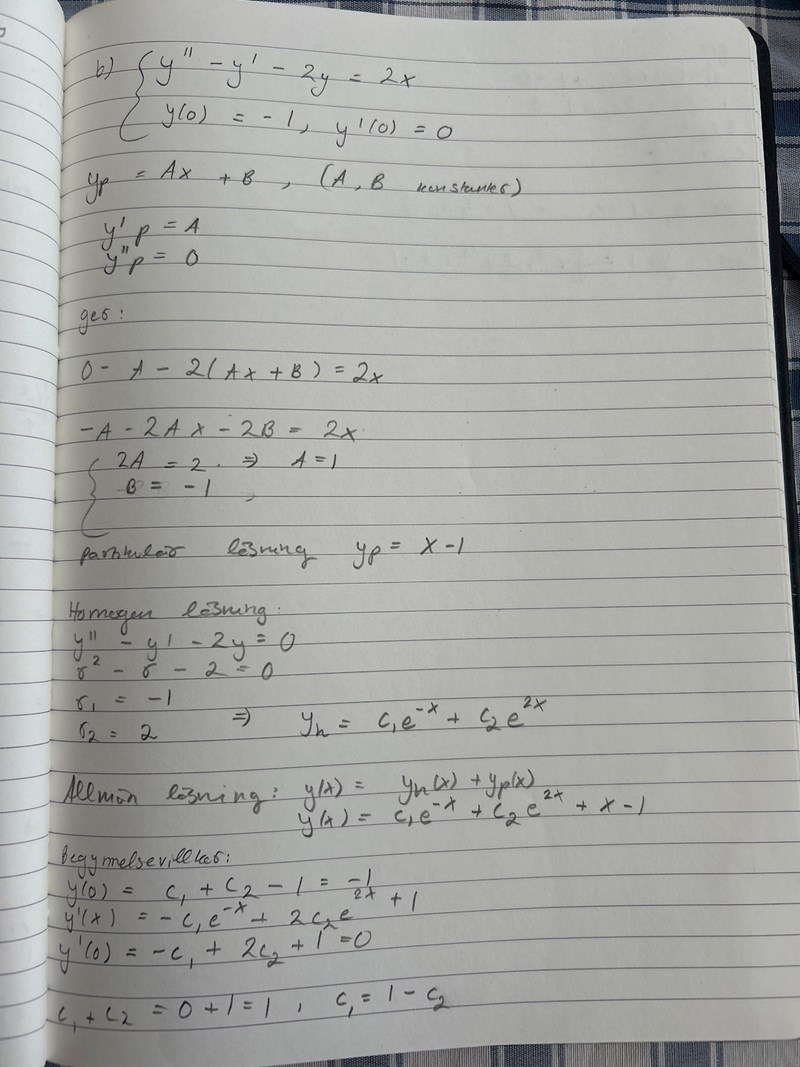 b) { y'' - y' - 2y = 2x
y(0) = -1, y'(0) = 0
yp = Ax + B, (A, B konstanter)
y'p = A
y''p = 0
ger:
0 - A - 2(Ax + B) = 2x
-A - 2Ax - 2B = 2x
{ 2A = 2. ⇒ A = 1
B = -1,
partikulär lösning yp = x - 1
Homogen lösning:
y'' - y' - 2y = 0
r² - r - 2 = 0
r₁ = -1
r₂ = 2 ⇒ yh = c₁e⁻ˣ + c₂e²ˣ
Allmän lösning: y(x) = yh(x) + yp(x)
y(x) = c₁e⁻ˣ + c₂e²ˣ + x - 1
Begynnelsevillkor:
y(0) = c₁ + c₂ - 1 = -1
y'(x) = -c₁e⁻ˣ + 2c₂e²ˣ + 1
y'(0) = -c₁ + 2c₂ + 1 = 0
c₁ + c₂ = 0 + 1 = 1, c₁ = 1 - c₂